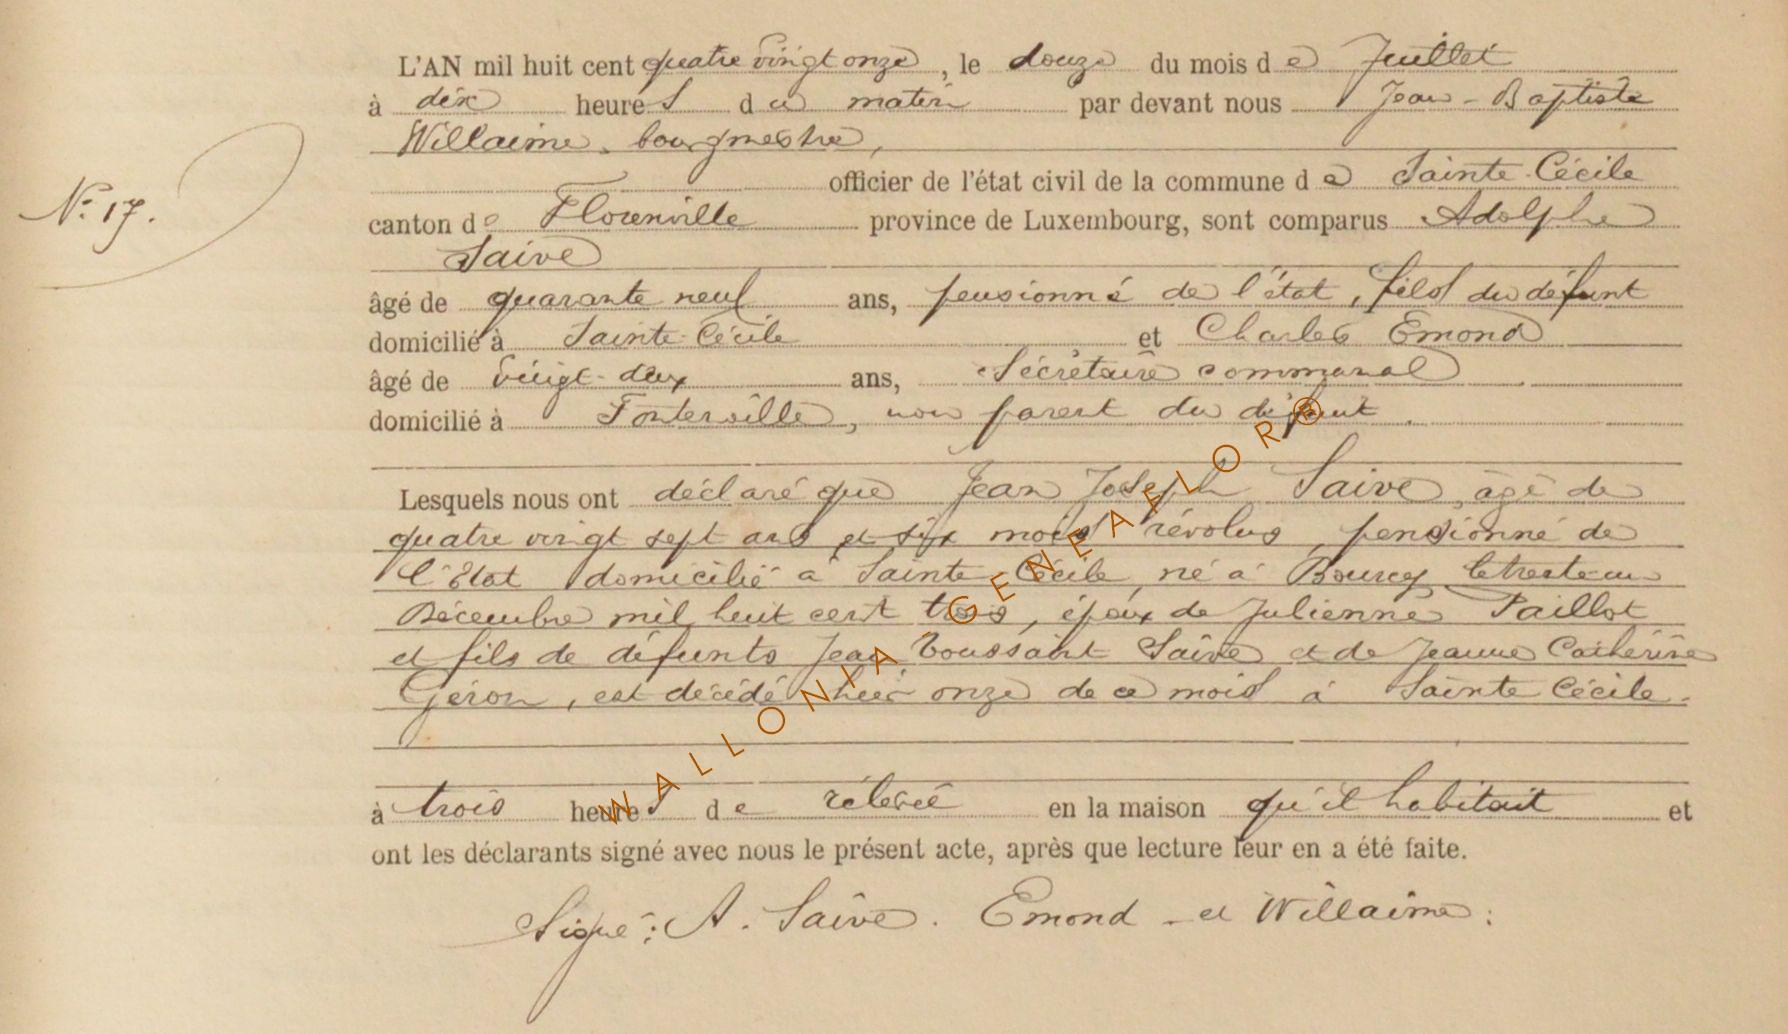 L'AN mil huit cent quatre vingt onze, le douze du mois de Juillet
à dix heures du matin par devant nous Jean-Baptiste
Willaime, bourgmestre,
officier de l'état civil de la commune de Sainte-Cécile
N° 17.
canton de Florenville province de Luxembourg, sont comparus Adolphe
Saive
âgé de quarante neuf ans, pensionné de l'état, fils du défunt
domicilié à Sainte-Cécile et Charles Emond
âgé de vingt-deux ans, Sécrétaire communal
domicilié à Fontenoille, non parent du défunt.
Lesquels nous ont déclaré que Jean Joseph Saive, âgé de
quatre vingt sept ans et six mois révolus, pensionné de
l'Etat domicilié à Sainte-Cécile, né à Bourcy le trente-un
Décembre mil huit cent trois, époux de Julienne Paillot
et fils de défunts Jean Toussaint Saive et de Jeanne Catherine
Géron, est décédé hier onze de ce mois à Sainte Cécile.
à trois heures de rélevée en la maison qu'il habitait et
ont les déclarants signé avec nous le présent acte, après que lecture leur en a été faite.
Signé: A. Saive. Emond - et Willaime:
WALLONIA GENEAFLOR®